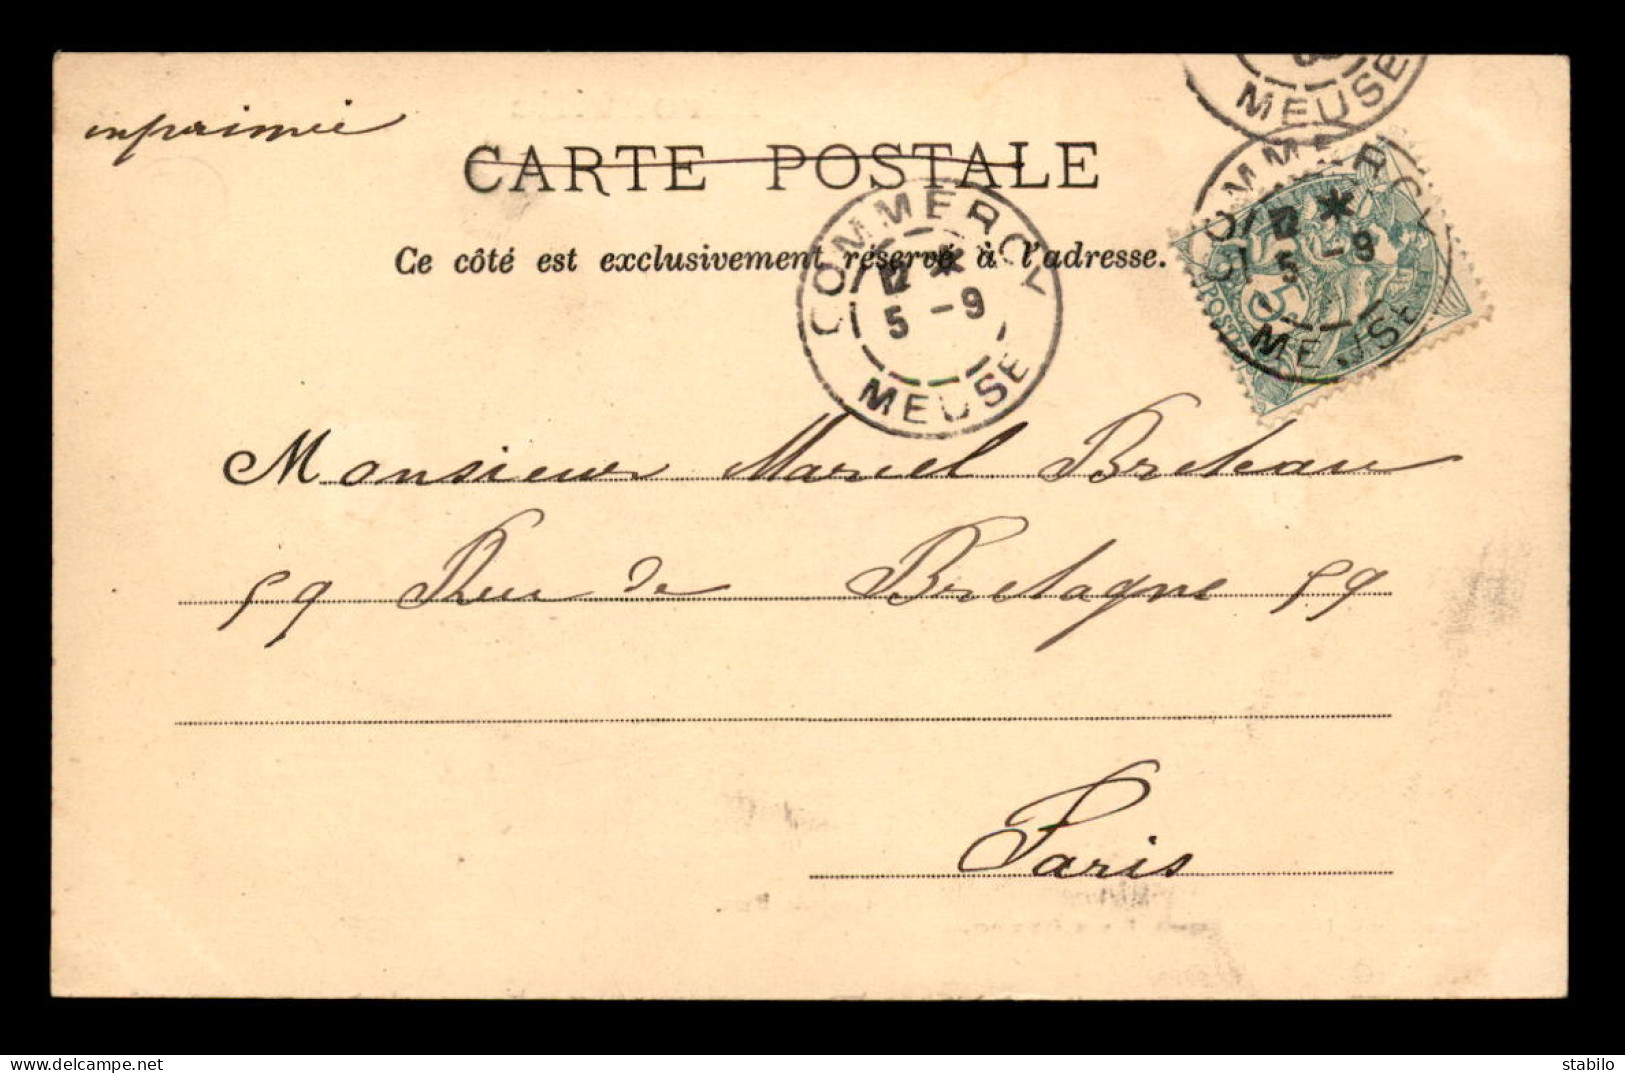 imprimée
CARTE POSTALE
Ce côté est exclusivement réservé à l'adresse.
COMMERCY
12 *
5 -9
MEUSE
MEUSE
COMMERCY
12 *
5 -9
MEUSE
5
POSTES
Monsieur Marcel Breteau
59 Rue de Bretagne 59
Paris
delcampe.net
stabilo